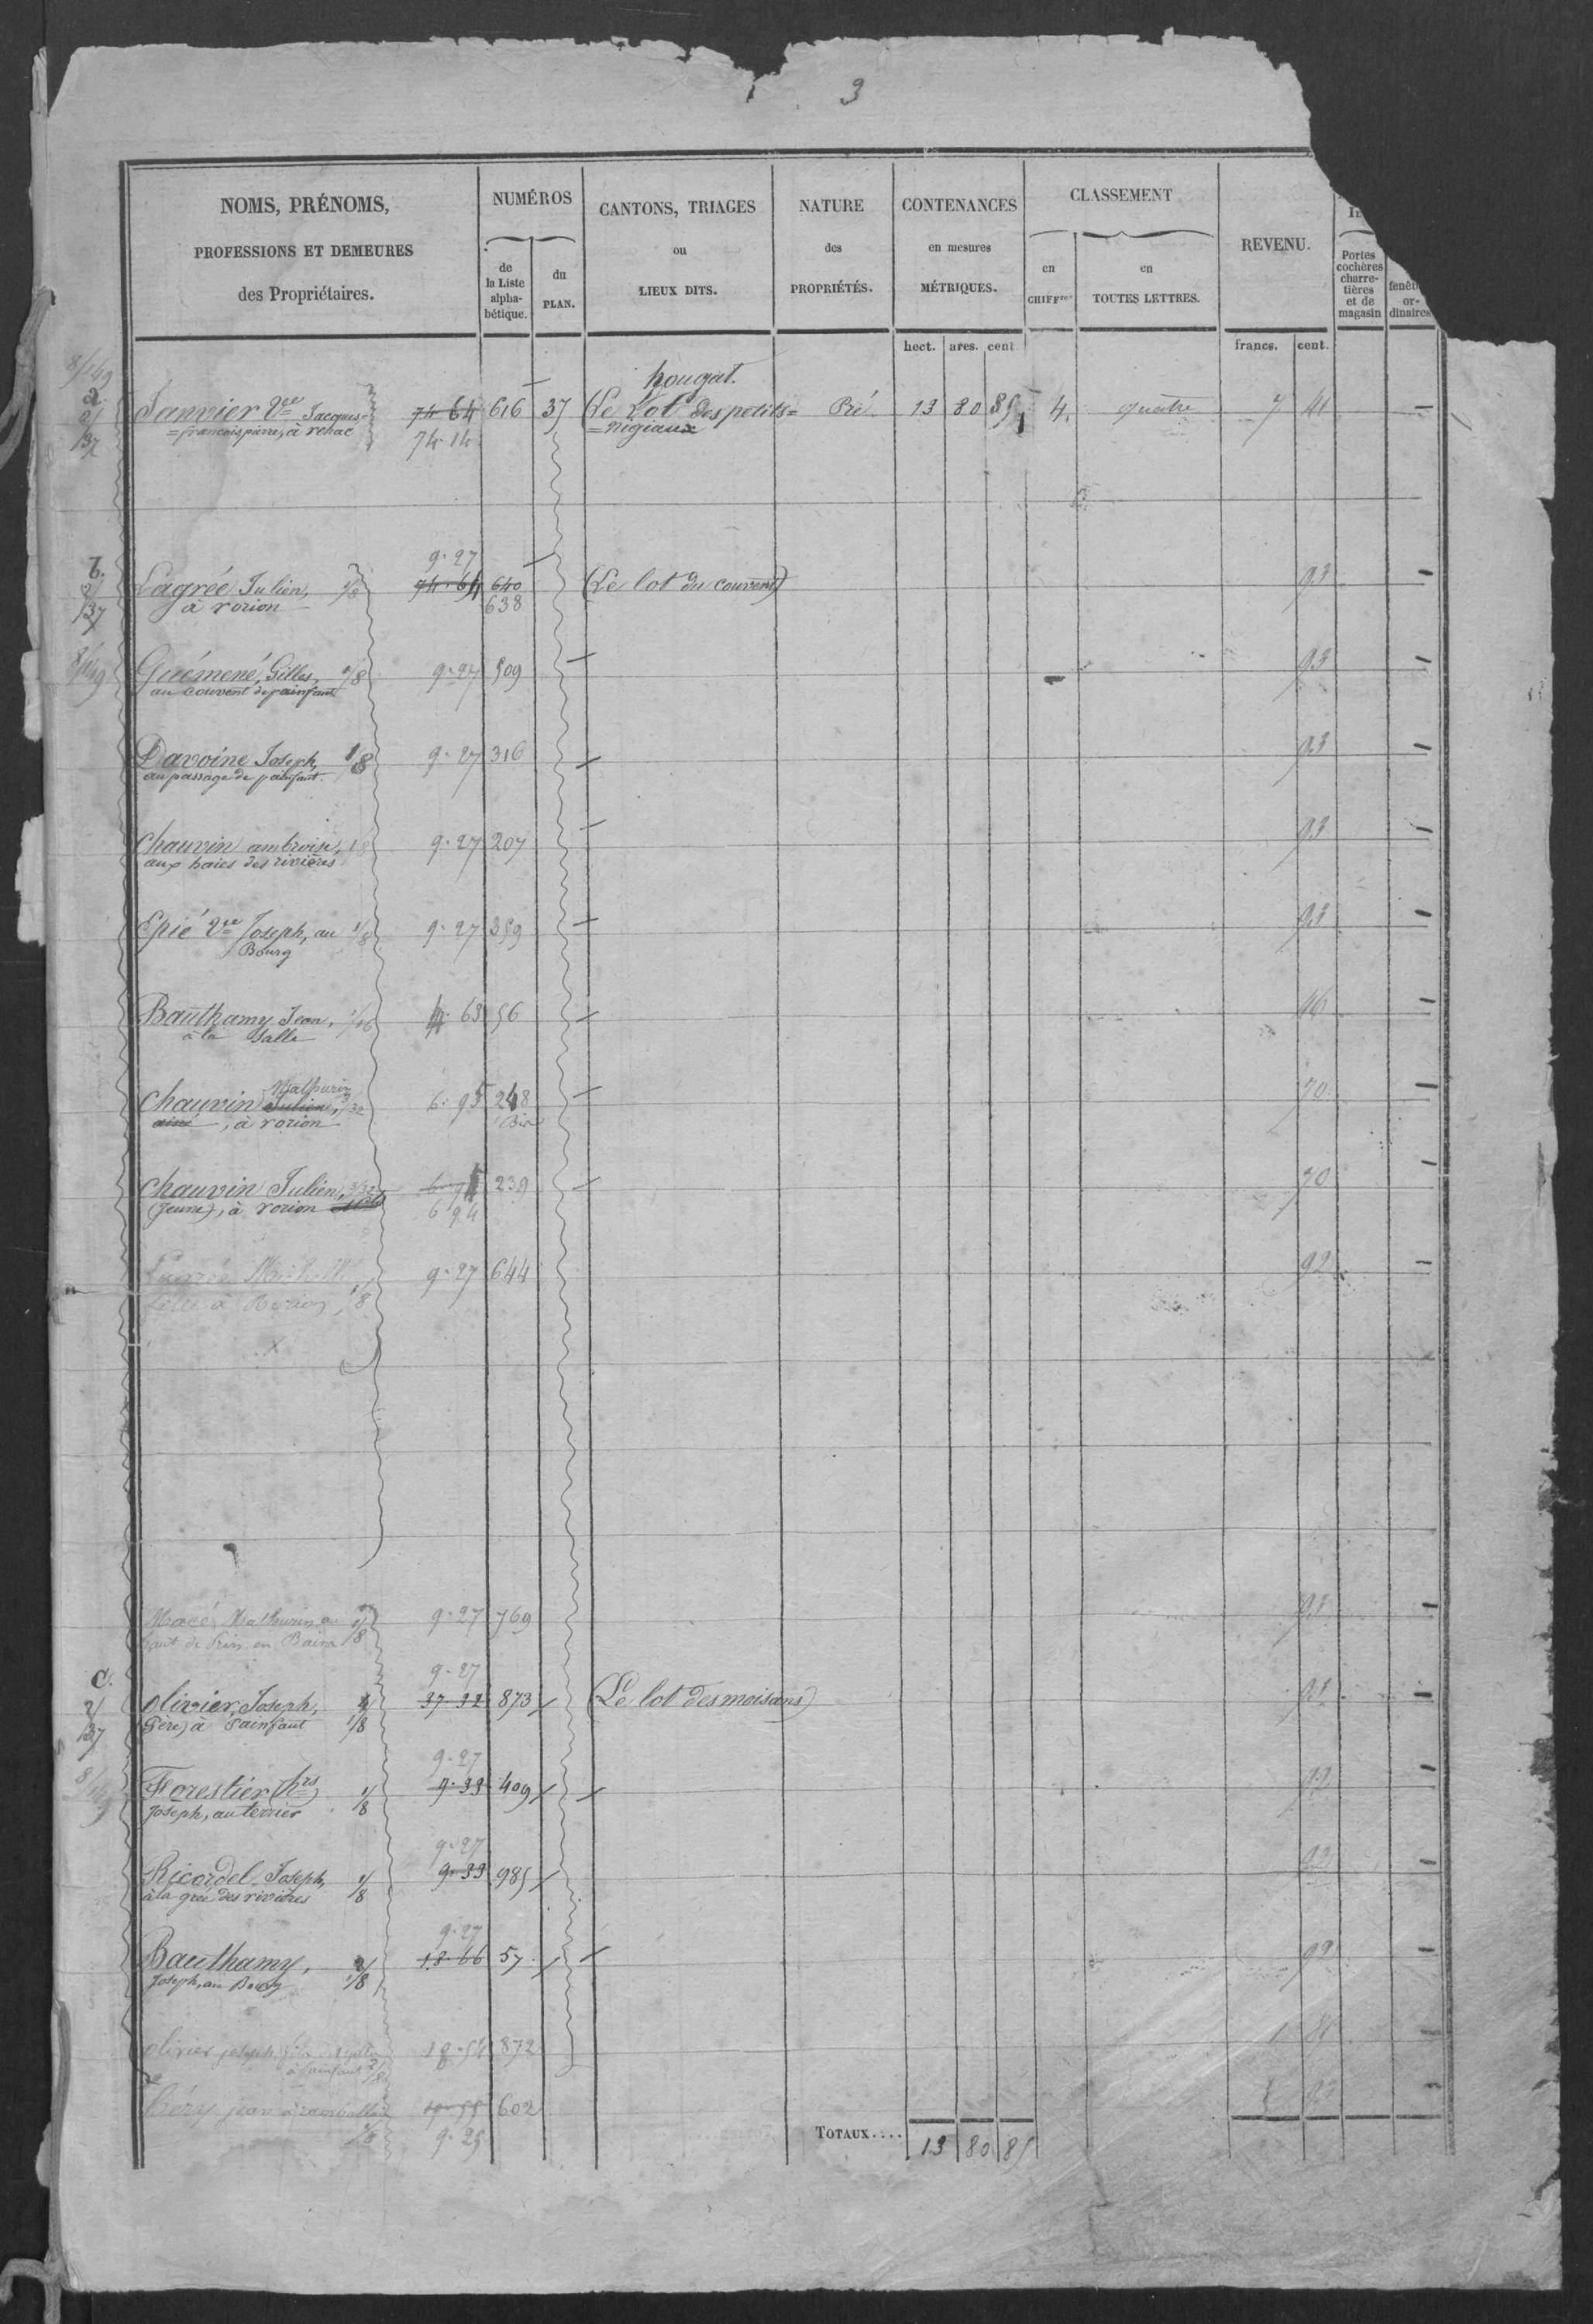 3
NOMS, PRÉNOMS,
PROFESSIONS ET DEMEURES
des Propriétaires.
NUMÉROS
de la Liste alpha-bétique.
du PLAN.
CANTONS, TRIAGES
ou
LIEUX DITS.
NATURE
des
PROPRIÉTÉS.
CONTENANCES
en mesures
MÉTRIQUES.
CLASSEMENT
en CHIFFres
en TOUTES LETTRES.
REVENU.
Portes cochères charre-tières et de magasin
or-dinaires
hect. ares. cent. francs. cent.
hougat.
a. Janvier Vve Jacques= 74 64 616 37 (Le Lot des petits= Pré 13 80 85 4. quatre 7 41 —
2/ =francois pierre, à rehac 74.14 =nigiaux
137
9.27
b. Lagrée Julien, 1/8 74.64 640 (Le lot du couvent) 93 —
2/ à rorion 638
137
Guémené, Gilles, 1/8 9.27 509 — 93 —
au couvent de painfaut
Davoine Joseph, 1/8 9.27 316 — 93 —
au passage de painfaut.
Chauvin ambroise, 1/8 9.27 207 — 93 —
aux haies des rivières
Epié Vve Joseph, au 1/8 9.27 359 — 93 —
Bourg
Bauthamy Jean, 1/16 63 56 — 46 —
à la Salle
Mathurin
Chauvin Julien, 3/32 6.95 248 — 70 —
ainé, à rorion Bis
Chauvin Julien, 3/32 239 — 70 —
(Jeune), à rorion 6 94
Lagrée 9.27 644 92 —
fille à Rorion, 1/8
Macé Mathurin au 1/8 9.27 769 93 —
haut de en Bains
9.27
C. Olivier, Joseph, 37.32 873 (Le lot des moisans) 93 —
2/ (Père) à Painfaut 1/8
137
9.27
Forestier (hrs) 1/8 9.33 409 — —
Joseph, au terrier
9.27
Ricordel Joseph, 1/8 9.33 985 —
à la grée des rivières
9.27
Bauthamy, 18.66 57 — 92 —
Joseph, au Bourg 1/8
olivier joseph 18.54 872 1 —
à painfaut 2/8
Héry jean 602 —
9.25
TOTAUX.... 13 80 85